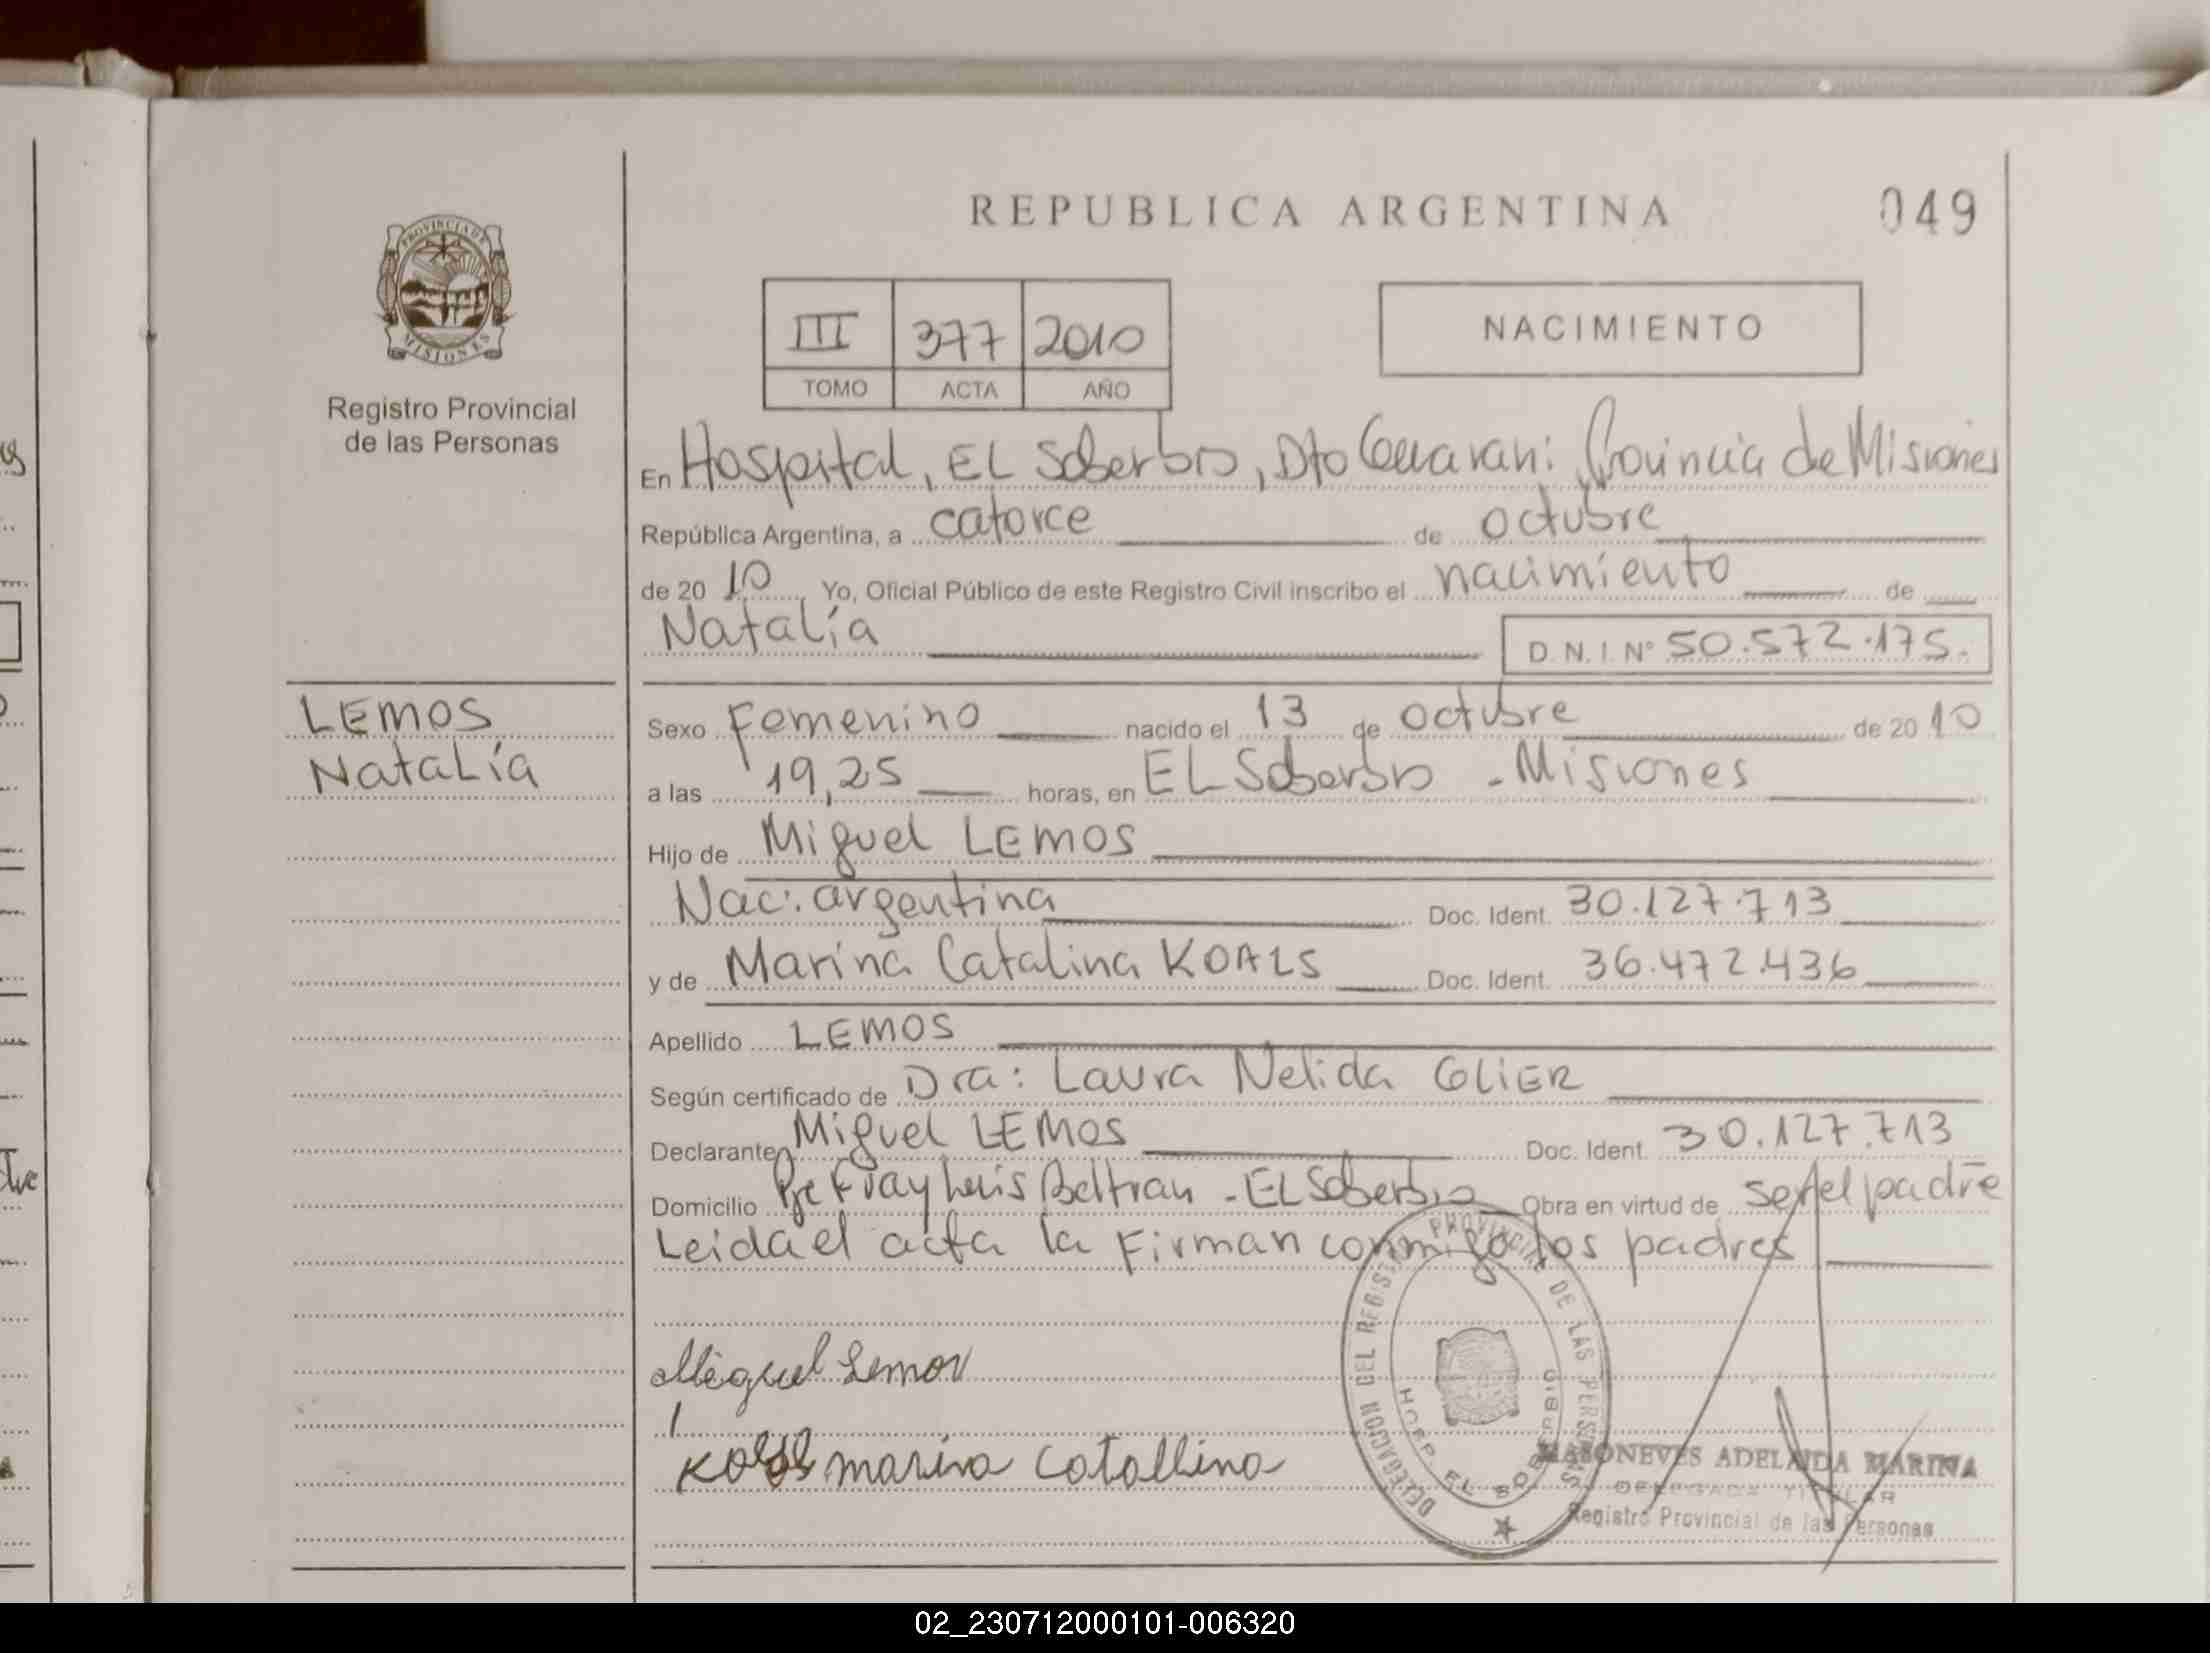 REPUBLICA ARGENTINA
049
PROVINCIA DE
MISIONES
Registro Provincial
de las Personas
III 377 2010
TOMO ACTA AÑO
NACIMIENTO
En Hospital, EL Soberbio, Dto Guaraní Provincia de Misiones
República Argentina, a catorce de octubre
de 2010 Yo, Oficial Público de este Registro Civil inscribo el nacimiento de
Natalia
D.N.I. Nº 50.572.175.
LEMOS
Natalía
Sexo Femenino nacido el 13 de octubre de 2010
a las 19,25 horas, en EL Soberbio - Misiones
Hijo de Miguel LEMOS
Nac: argentina Doc. Ident. 30.127.713
y de Marina Catalina KOALS Doc. Ident. 36.472.436
Apellido LEMOS
Según certificado de Dra: Laura Nelida GLIER
Declarante Miguel LEMOS Doc. Ident. 30.127.713
Domicilio Fray Luis Beltran - EL Soberbio Obra en virtud de ser el padre
Leida el acta la Firman conmigo los padres
Miguel Lemos
marina Catallina
DELEGACION DEL REGISTRO PROVINCIAL DE LAS PERSONAS
HOSP. EL SOBERBIO
ADELAIDA MARINA
DELEGADA TITULAR
Registro Provincial de las Personas
02_230712000101-006320